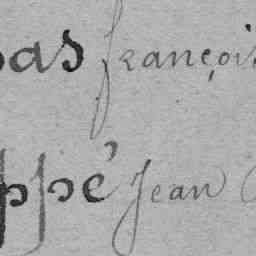 pas françois
ppé Jean